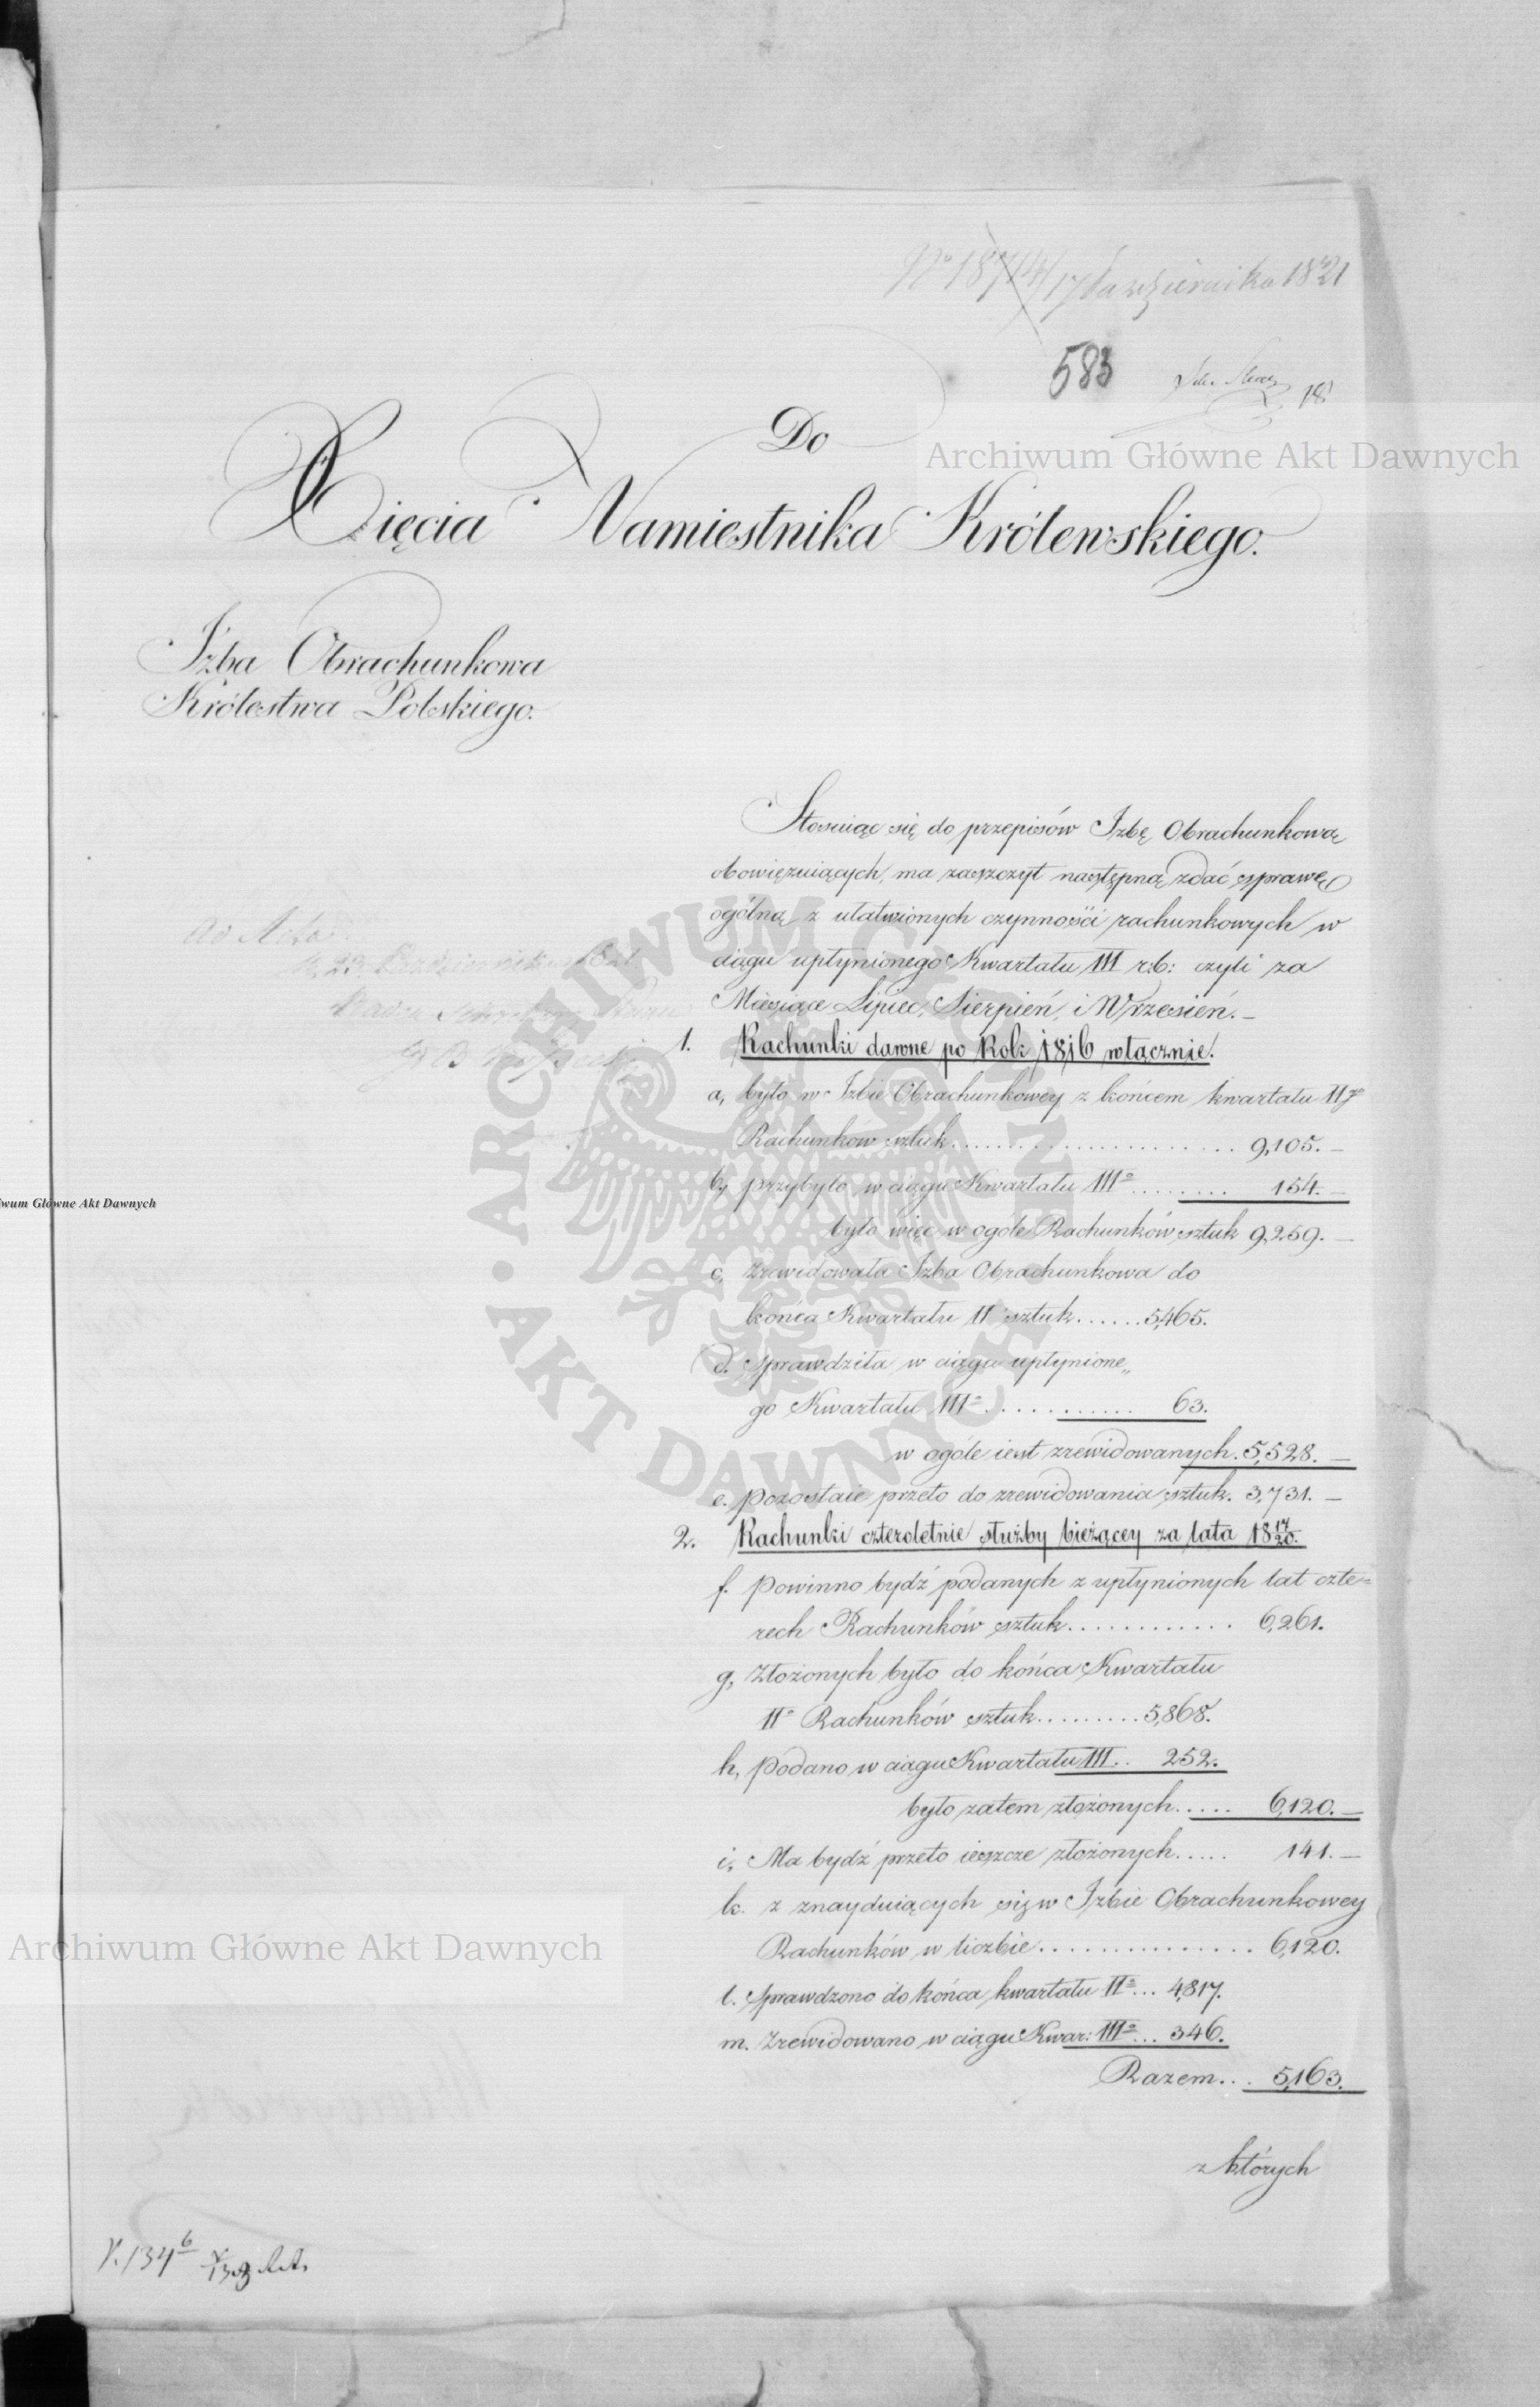 17 Października 1821
583
Do
Xięcia Namiestnika Królewskiego.
Archiwum Główne Akt Dawnych
Izba Obrachunkowa
Królestwa Polskiego.
Stosuiąc się do przepisów Izbę Obrachunkową
obowięzuiących, ma zaszczyt następną zdać sprawę
ogólną z ułatwionych czynności rachunkowych w
ciągu upłynionego Kwartału III r:b: czyli za
Miesiące Lipiec, Sierpień, i Wrzesień. –
Ad Acta
d. 23. Października 821.
1. Rachunki dawne po Rok 1816 włącznie.
a, było w Izbie Obrachunkowey z końcem kwartału II go
Rachunków sztuk........................ 9,105. –
b, przybyło w ciągu Kwartału III o ........ 154. –
było więc w ogóle Rachunków sztuk 9,259. –
c, Zrewidowała Izba Obrachunkowa do
końca Kwartału II sztuk...... 5,465.
d. Sprawdziła w ciągu upłynione„
go Kwartału III o ............ 63.
w ogóle iest zrewidowanych. 5,528. –
e. Pozostaie przeto do zrewidowania sztuk. 3,731. –
2. Rachunki czteroletnie służby bieżącey za lata 18 17/20.
f. Powinno bydź podanych z upłynionych lat czte=
rech Rachunków sztuk............ 6,261.
g, Złożonych było do końca Kwartału
II o Rachunków sztuk......... 5,868.
h, Podano w ciągu Kwartału III.. 252.
było zatem złożonych..... 6,120. –
i, Ma bydź przeto ieszcze złożonych..... 141. –
k. z znayduiących się w Izbie Obrachunkowey
Rachunków w liczbie............... 6,120.
l. Sprawdzono do końca kwartału II o ... 4,817.
m. Zrewidowano w ciągu Kwar: III o ... 346.
Razem... 5,163.
z których
ARCHIWUM GŁÓWNE · AKT DAWNYCH ·
iwum Główne Akt Dawnych
Archiwum Główne Akt Dawnych